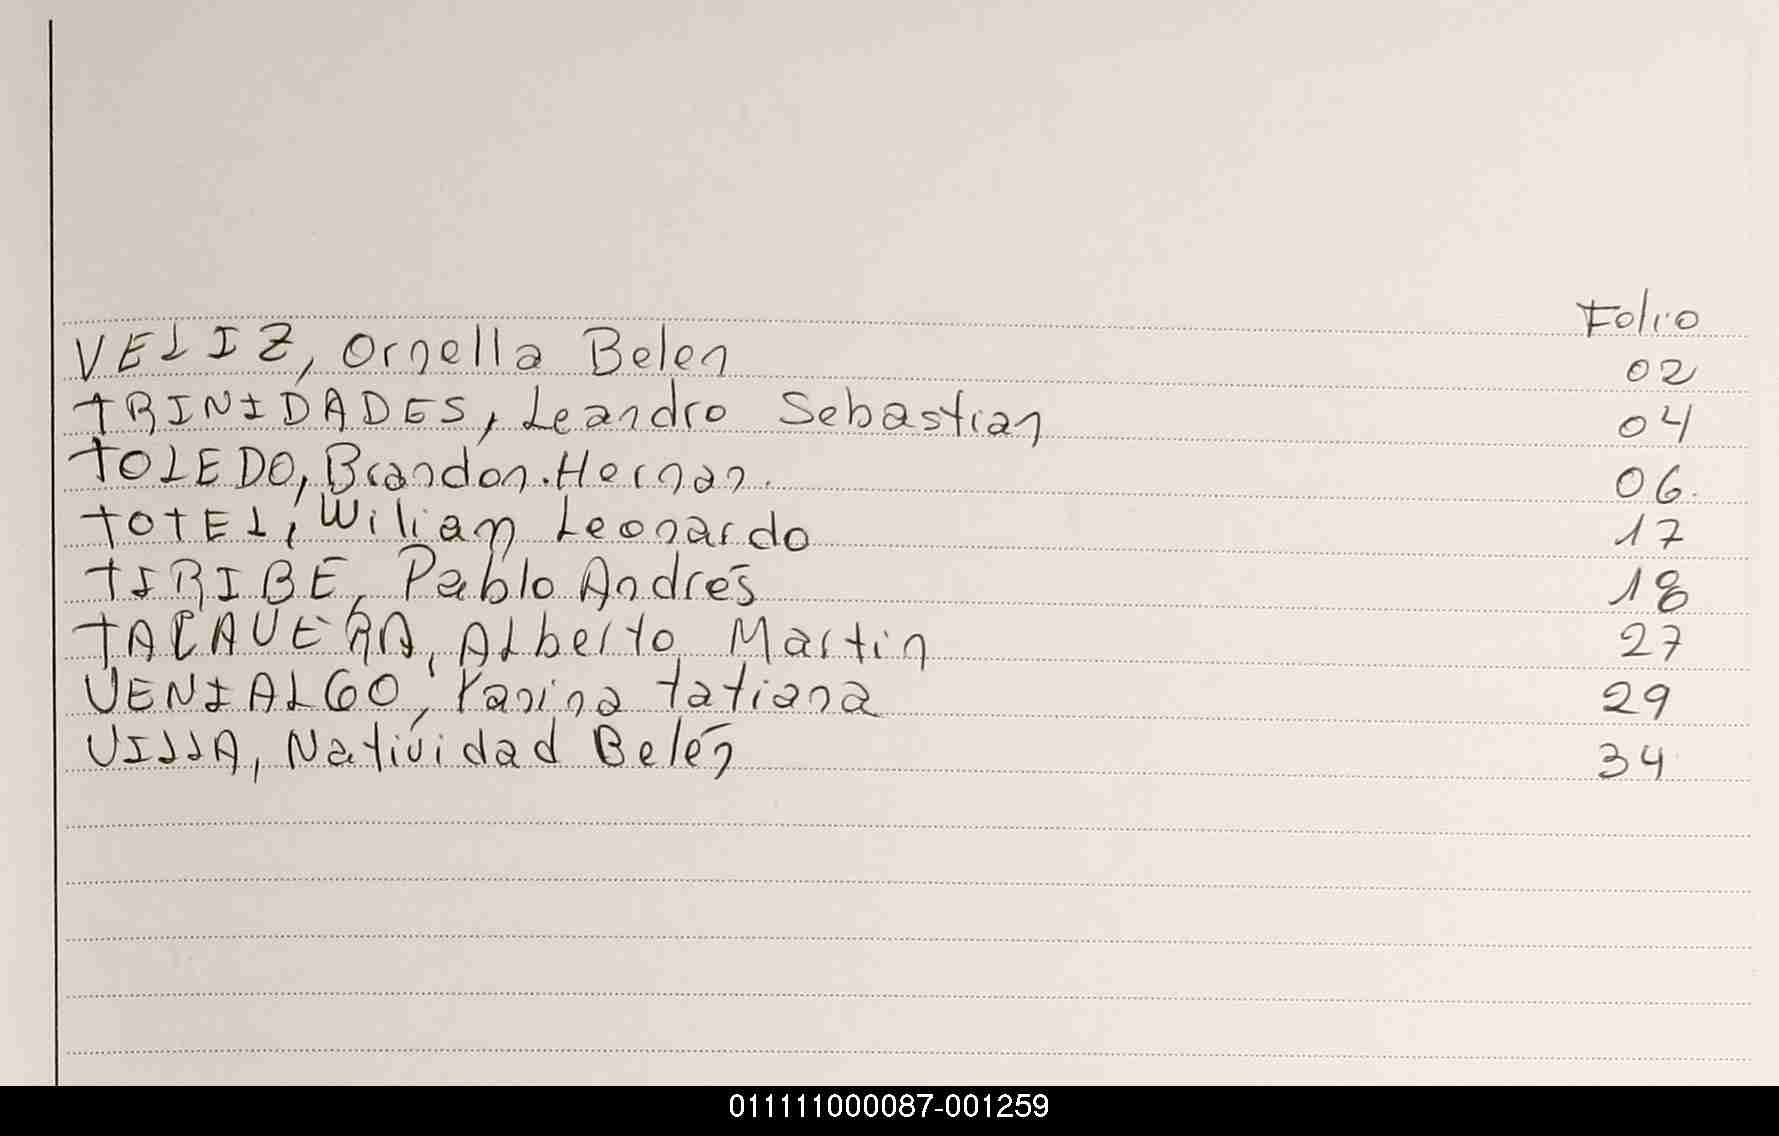 Folio
VELIZ, Ornella Belen 02
TRINIDADES, Leandro Sebastian 04
TOLEDO, Brandon Hernan. 06.
TOTEL, Wiliam Leonardo 17
TIRIBE, Pablo Andrés 18
TACAVERA, Alberto Martin 27
VENIALGO, Yanina Tatiana 29
VILLA, Natividad Belén 34
011111000087-001259